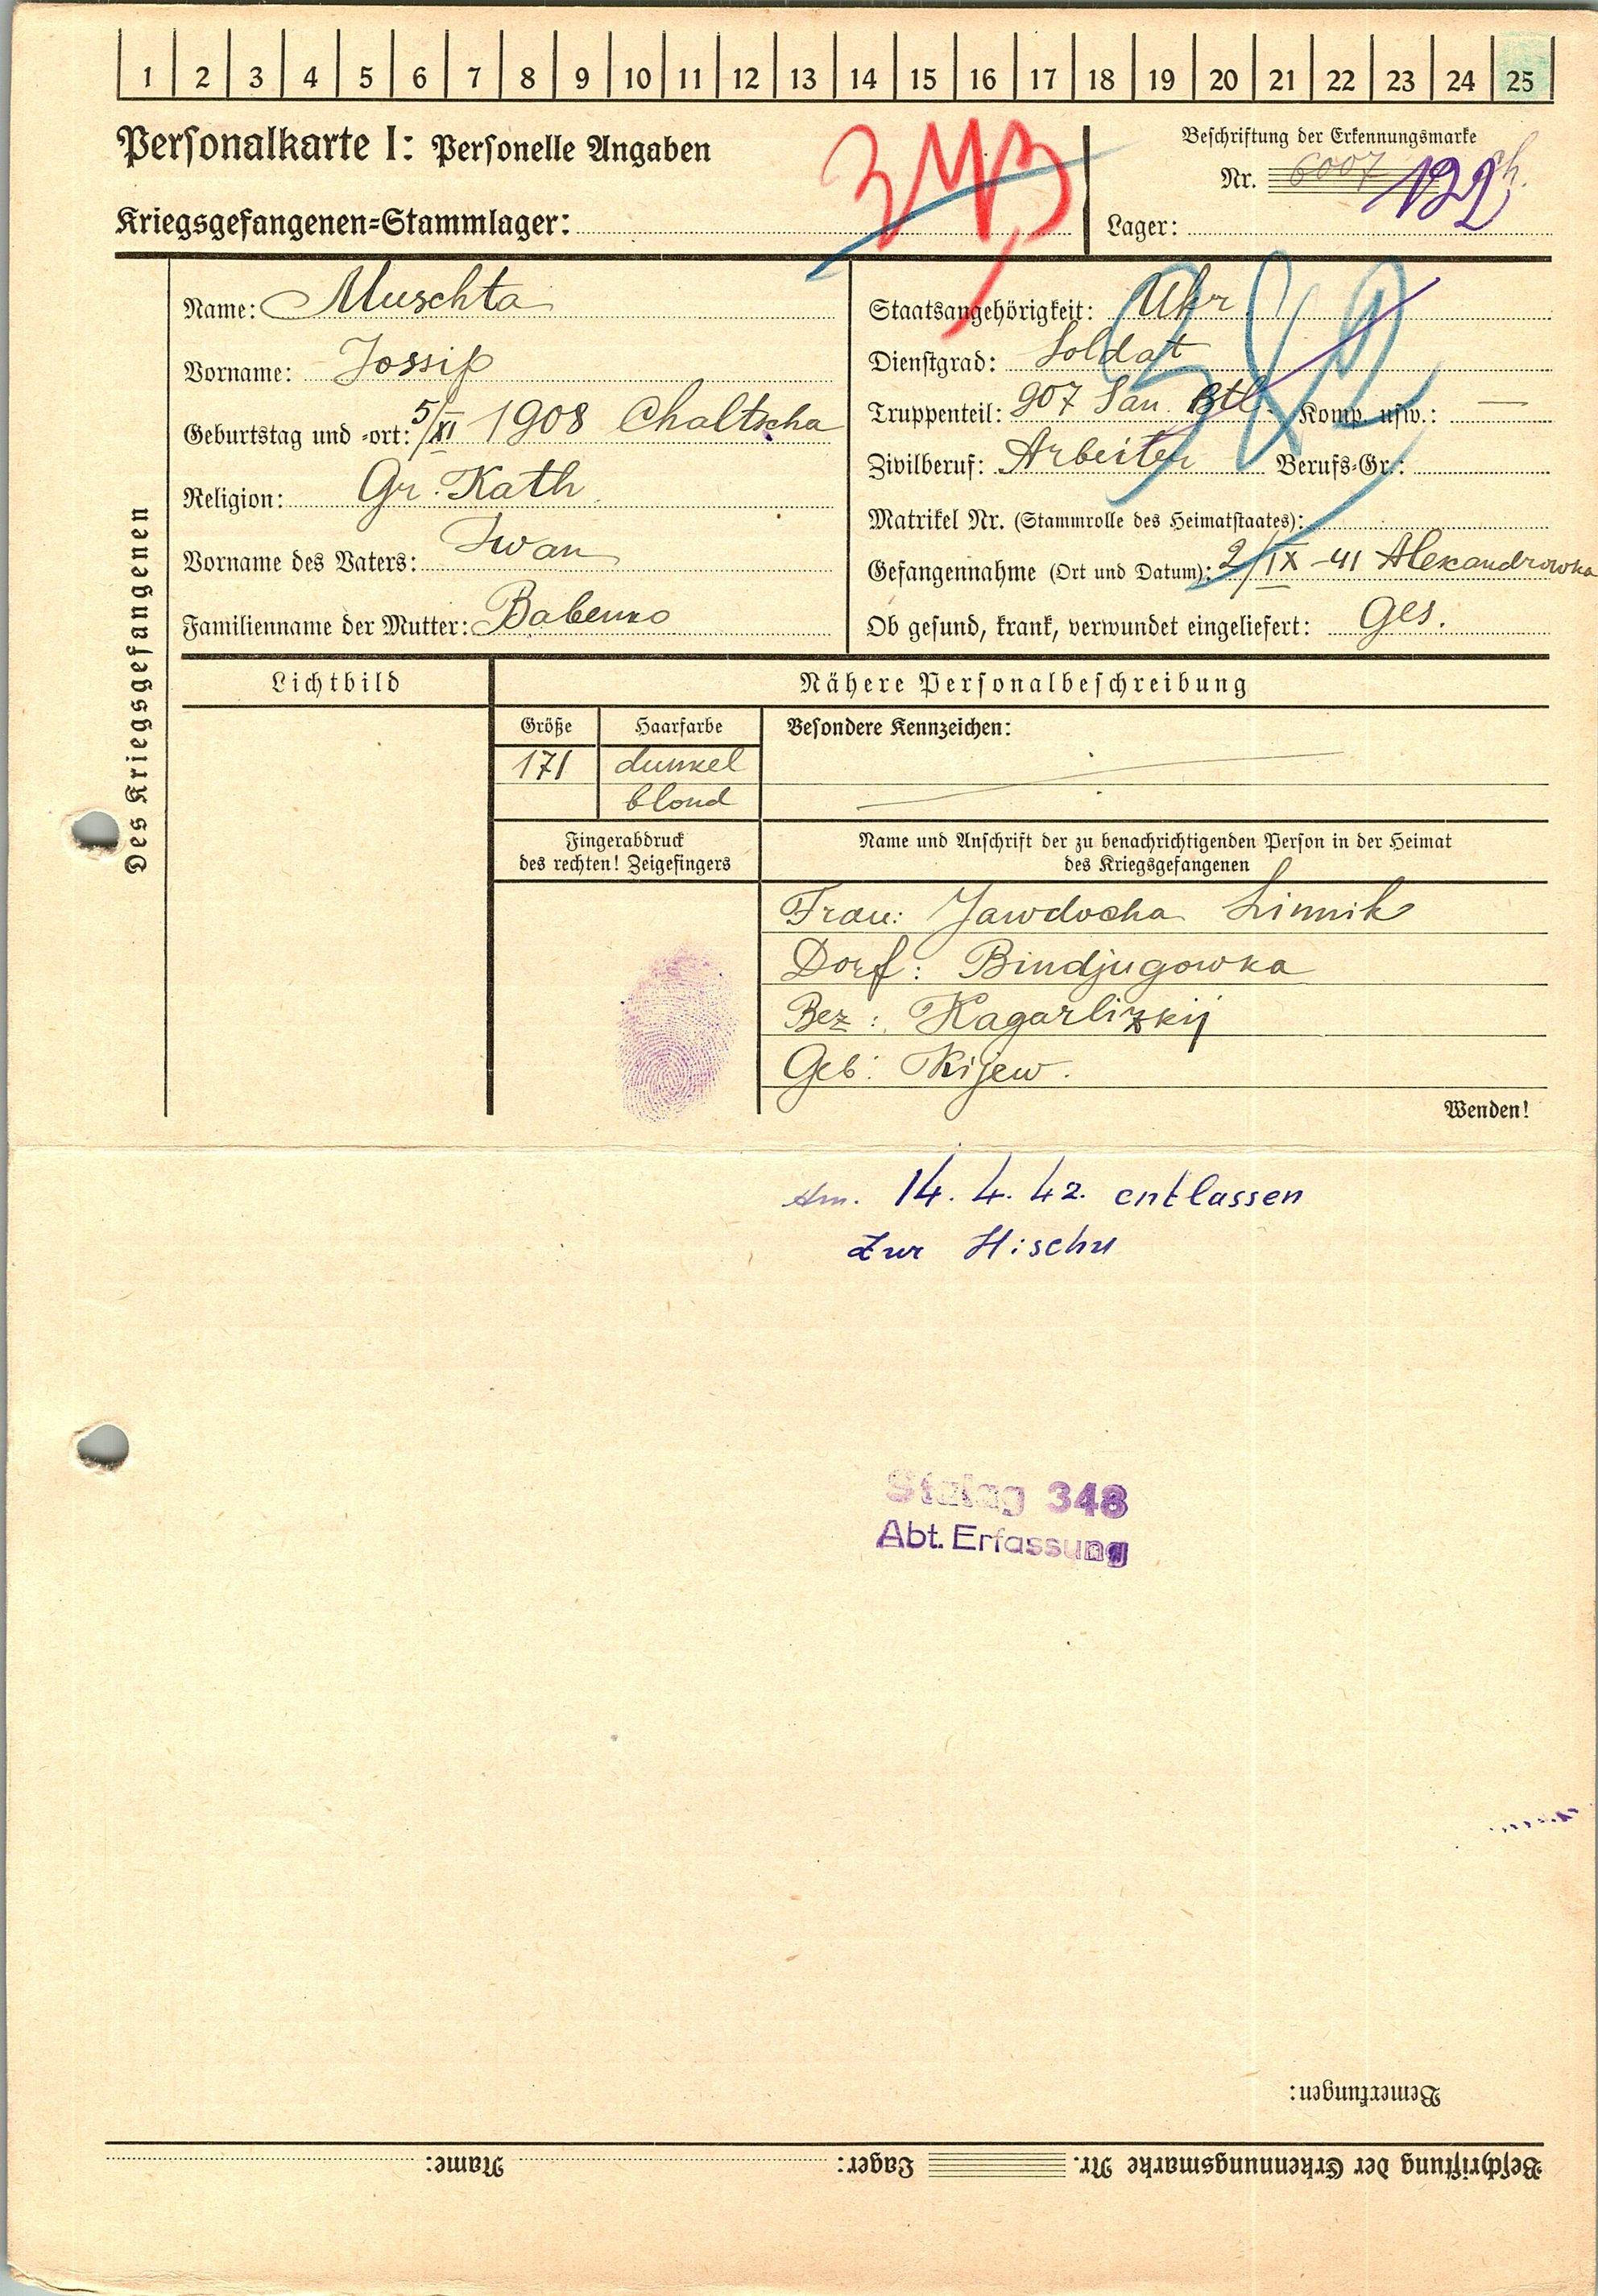 1 2 3 4 5 6 7 8 9 10 11 12 13 14 15 16 17 18 19 20 21 22 23 24 25
Personalkarte I: Personelle Angaben
Kriegsgefangenen=Stammlager:
Beschriftung der Erkennungsmarke
Nr. 6007
Lager:
Des Kriegsgefangenen
Name: Muschta
Vorname: Jossip
Geburtstag und =ort: 5/XI 1908 Chaltscha
Religion: Gr. Kath.
Vorname des Vaters: Iwan
Familienname der Mutter: Babenko
Staatsangehörigkeit: Ukr.
Dienstgrad: Soldat
Truppenteil: 907 San. Btl. Komp. usw.: —
Zivilberuf: Arbeiter Berufs=Gr.:
Matrikel Nr. (Stammrolle des Heimatstaates):
Gefangennahme (Ort und Datum): 2/IX -41 Alexandrowka
Ob gesund, krank, verwundet eingeliefert: Ges.
Lichtbild
Nähere Personalbeschreibung
Größe
171
Haarfarbe
dunkel
blond
Besondere Kennzeichen:
Fingerabdruck
des rechten! Zeigefingers
Name und Anschrift der zu benachrichtigenden Person in der Heimat
des Kriegsgefangenen
Frau: Jawdocha Linnik
Dorf: Bindjugowka
Bez: Kagarlizkij
Geb: Kijew.
Wenden!
Am. 14. 4. 42. entlassen
zur
Stalag 348
Abt. Erfassung
Bemerkungen:
Beschriftung der Erkennungsmarke Nr. Lager: Name: